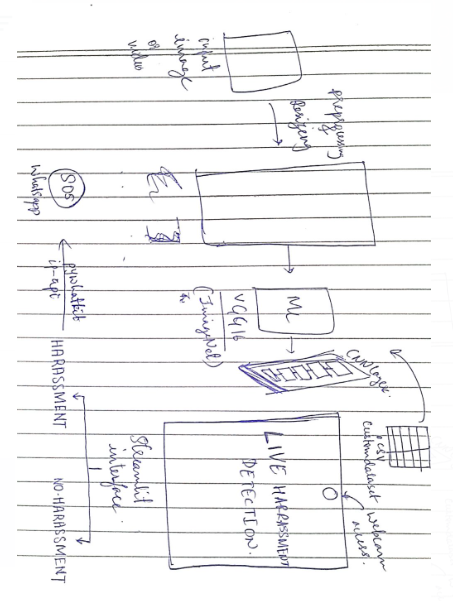 input
image
or
video
preprocessing
resizing
ML
VGG16
(ImageNet)
CNN layer.
.csv
custom dataset
webcam
access.
LIVE HARASSMENT
DETECTION.
Streamlit
interface.
HARASSMENT
NO-HARASSMENT
pywhatkit
SOS
whatsapp